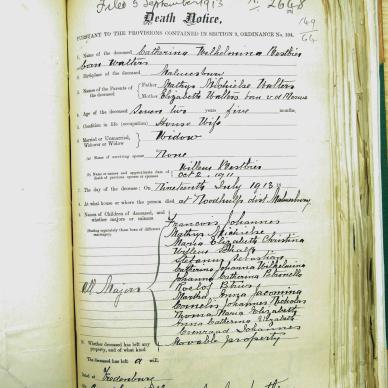 Filed 5 September 1913
No 2668
Death Notice,
PURSUANT TO THE PROVISIONS CONTAINED IN SECTION 9, ORDINANCE No. 104.
1. Name of the deceased Catharina Wilhelmina Bestbier
born Walters
2. Birthplace of the deceased Malmesbury
3. Names of the Parents of the deceased
Father Mathys Michielse Walters
Mother Elizabeth Walters born v d Merwe
4. Age of the deceased Seven two years five months
5. Condition in life (occupation) House Wife
6. Married or Unmarried, Widower or Widow Widow
Name of surviving spouse None
Name or names and approximate date of death of previous spouse or spouses Willem Bestbier
Oct 2. 1911
7. The day of the decease: On Nineteenth July 1913
8. At what house or where the person died At Noodhulp dist. Malmesbury
9. Names of Children of deceased, and whether majors or minors
Francois Johannes
Mathys Michielse
Maria Elizabeth Christina
Willem
Stefanus Sebastian
Catharina Johanna Wilhelmina
Johanna Catharina Petronella
Roelof Petrus
Martha Anna Jacomina
Cornelis Johannes Nicholas
Thomas Maria Elizabeth
Anna Catharina Elizabeth
Coenraad Johannes
All Majors
10. Whether deceased has left any property, and of what kind Movable property
The deceased has left a will.
Dated at Vredenburg